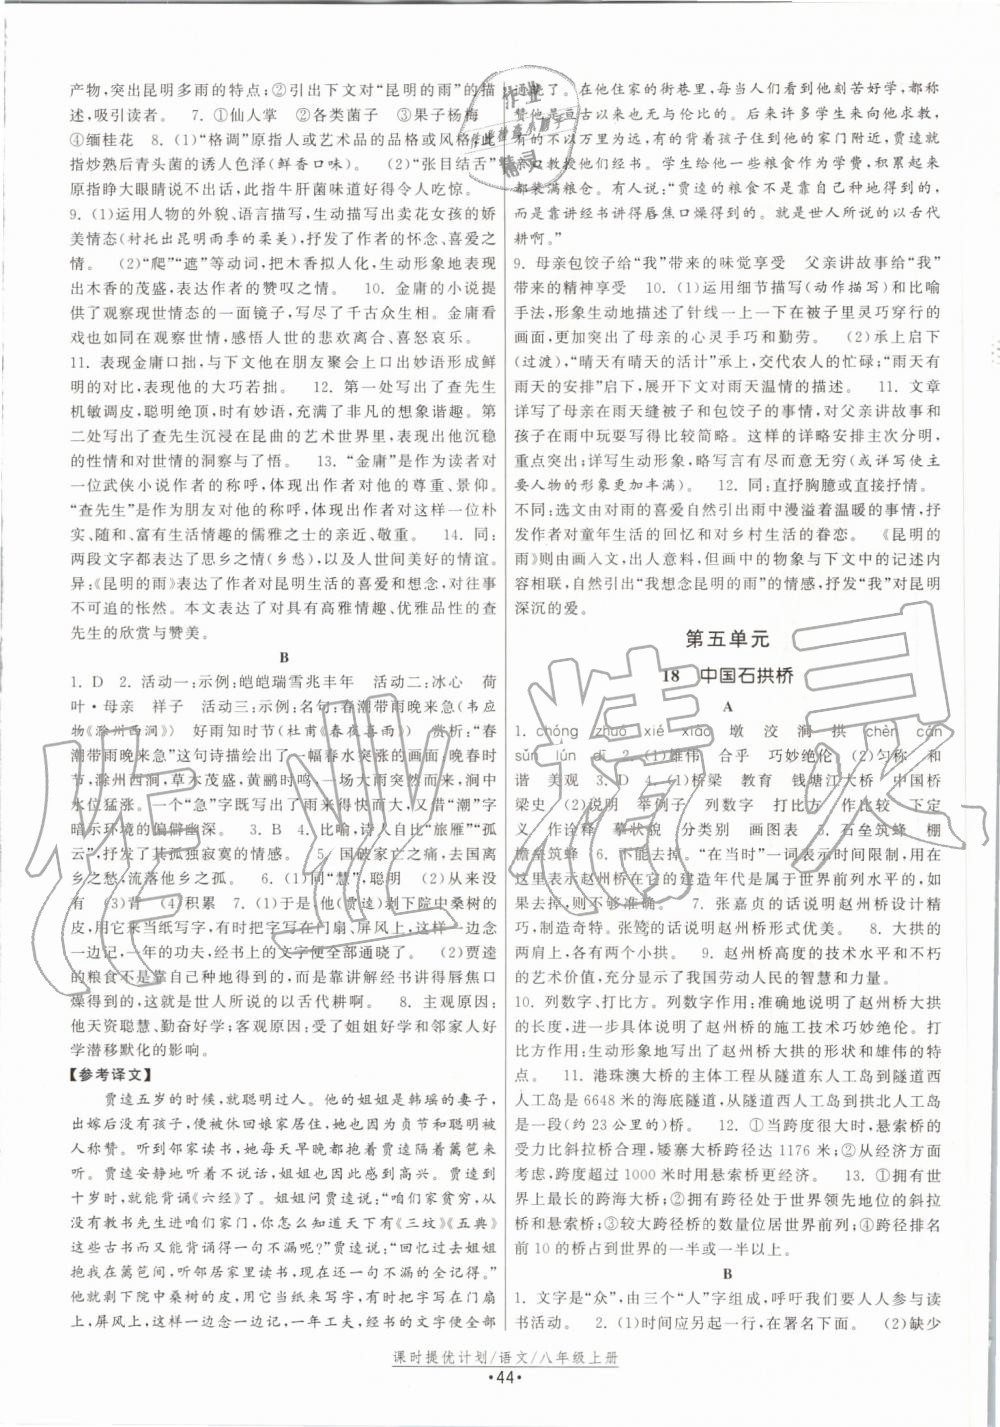 产物,突出昆明多雨的特点;②引出下文对“昆明的雨”的描
述,吸引读者。 7. ①仙人掌 ②各类菌子 ③果子杨梅
④缅桂花 8. (1)“格调”原指人或艺术品的品格或风格,此
指炒熟后青头菌的诱人色泽(鲜香口味)。 (2)“张目结舌”
原指睁大眼睛说不出话,此指牛肝菌味道美得令人吃惊。
9. (1)运用人物的外貌、语言描写,生动描写出卖花女孩的娇
美情态(衬托出昆明雨季的柔美),抒发了作者的怀念、喜爱之
情。 (2)“爬”“遮”等动词,把木香拟人化,生动形象地表现
出木香的茂盛,表达作者的赞叹之情。 10. 金庸的小说提
供了观察现世情态的一面镜子,写尽了千古众生相。金庸用
看戏如看世情,感悟人世的悲欢离合、喜怒哀乐。
11. 表现金庸口拙,与下文他在朋友聚会上口出妙语形成鲜
明的对比,表现他的大巧若拙。 12. 第一处写出了查先生
机敏调皮,聪明绝顶,时有妙语,充满了非凡的想象谐趣。第
二处写出了查先生沉浸在昆曲的艺术世界里,表现出他沉稳
的性情和对世情的洞察与了悟。 13. “金庸”是作为读者对
一位武侠小说作者的称呼,体现出对作者的尊重、景仰。
“查先生”是作为朋友对他的称呼,体现出作者对这样一位朴
实、随和、富有生活情趣的儒雅之士的亲近、敬重。 14. 同:
两段文字都表达了思乡之情,以及人世间美好的情谊。
异:《昆明的雨》表达了作者对昆明生活的喜爱和想念,对往事
不可追的怅然。本文表达了对具有高雅情趣、优雅品性的查
先生的欣赏与赞美。
B
1. D 2. 活动一:示例:皑皑瑞雪兆丰年 活动二:冰心 荷
叶·母亲 祥子 活动三:示例:名句:春潮带雨晚来急(韦应
物《滁州西涧》) 好雨知时节(杜甫《春夜喜雨》) 赏析:“春
潮带雨晚来急”这句诗描绘出了一幅春水突涨的画面:晚春时
节,滁州西涧,草木茂盛,黄鹂时鸣,一场大雨突然来临,涧中
水位猛涨。一个“急”字写出了雨来得快而大,又借“潮”字
暗示环境的偏僻幽深。 3. B 4. 比喻,诗人自比“旅雁”“孤
云”,抒发了其孤独寂寞的情感。 5. 国破家亡之痛,去国离
乡之愁,流落他乡之孤。 6. (1)同“慧”,聪明 (2)从来没有
(3)背 (4)积累 7. (1)于是,他(贾逵)剥下院中桑树的
皮,用它来当纸写字,有时把字写在门扇、屏风上,这样一边念
一边记,一年的功夫,经书便全部通晓了。 (2)贾逵
的粮食不是自己种地得到的,而是靠讲解经书讲得唇焦口
燥得到的,这就是世人所说的以舌代耕啊。 8. 主观原因:
他天资聪慧、勤奋好学;客观原因:受了姐姐好学和邻家人好
学潜移默化的影响。
【参考译文】
贾逵五岁的时候,就聪明过人。他的姐姐是韩瑶的妻子,
出嫁后没有孩子,便被休回娘家居住,她也因为贞节和聪明被
人称赞。听到邻家读书,她每天早晚都抱着贾逵隔着篱笆来
听。贾逵安静地听着不说话,姐姐也因此感到高兴。贾逵到
十岁时,就能背诵《六经》了。姐姐问贾逵说:“咱们家贫穷,从
没有教书先生进咱们家门,你怎么知道天下有《三坟》《五典》
这些古书而又能背诵得一句不漏呢?”贾逵说:“回想过去姐姐
抱我在篱笆间,听邻居家里读书,现在还一句不漏的全记得。”
他就剥下院中桑树的皮,用它当纸来写字,有时把字写在门扇
上,屏风上,这样一边念一边记,一年工夫,经书的文字便全部
通晓了。在他住家的街巷里,每个人都见到他刻苦好学,都称
赞他是亘古以来没有人能与他伦比的。后来许多学生来向他求教,
有的不以万里为远,有的背着孩子住到他的家门附近,贾逵
亲口教授他们经书。学生给他一些粮食作为学费,慢慢积累
都装满粮仓。有人说:“贾逵的粮食不是自己种地得到的,
而是靠讲经书讲得唇焦口燥得到的。就是世人所说的以舌代
耕啊。”
9. 母亲包饺子给“我”带来的味觉享受 父亲讲故事给“我”
带来的精神享受 10. (1)运用细节描写(动作描写)和比喻
手法,形象生动地描述了针线一上一下在被子里灵巧穿行的
画面,突出了母亲的心灵手巧和勤劳。 (2)承上启下
(过渡),“晴天有晴天的活计”承上,交代农人的忙碌;“雨天有
雨天的安排”启下,展开下文对雨天温情的描述。 11. 文章
详写了母亲在雨天缝被子和包饺子的事情,对父亲讲故事和
孩子在雨中玩要写得比较简略。这样的详略安排主次分明,
重点突出;详写生动形象,略写言有尽而意无穷(或详写使主
要人物的形象更加丰满)。 12. 同:直抒胸臆或直接抒情。
不同:选文由对雨的喜爱自然引出雨中漫溢着温暖的事情,抒
发作者对童年生活的回忆和对乡村生活的喜爱。《昆明的
雨》则由画入文,出人意料,但画中的物象与下文中的记述内
容相联,自然引出“我想念昆明的雨”的情感,抒发“我”对昆明
深沉的爱。
第五单元
18 中国石拱桥
A
1. chóng zhuó xié xiáo 墩 洨 涧 拱 chèn cán
sǔn lún dī 2. (1)雄伟 合乎 巧妙绝伦 (2)匀称 和
谐 美观 3. D 4. (1)桥梁 教育 钱塘江大桥 中国桥
梁史 (2)说明 举例子 列数字 打比方 作比较 下定
义 作诠释 摹状貌 分类别 画图表 5. 石垒筑蜂 棚
檐垒筑蜂 6. 不能去掉。“在当时”一词表示时间限制,用在
这里表示赵州桥在它的建造年代是属于世界前列水平的,如
果去掉,则不够准确。 7. 张嘉贞的话说明赵州桥设计精
巧,制造奇特。张鷟的话说明赵州桥形式优美。 8. 大拱的
两肩上,各有两个小拱。 9. 赵州桥高度的技术水平和不朽
的艺术价值,充分显示了我国劳动人民的智慧和力量。
10. 列数字、打比方。列数字作用:准确地说明了赵州桥大拱
的长度,进一步具体说明了赵州桥的施工技术巧妙绝伦。打
比方作用:生动形象地写出了赵州桥大拱的形状和雄伟的特
点。 11. 港珠澳大桥的主体工程从隧道东人工岛到隧道西
人工岛是 6648 米的海底隧道,从隧道西人工岛到拱北人工岛
是一段(约 23 公里的)桥。 12. ①当跨度很大时,悬索桥的
受力比斜拉桥合理;矮寨大桥跨径达 1176 米;②从经济方面
考虑,跨度超过 1000 米时用悬索桥更经济。 13. ①拥有世
界上最长的跨海大桥;②拥有跨径处于世界领先地位的斜拉
桥和悬索桥;③较大跨径桥的数量位居世界前列;④跨径排名
前 10 的桥占到世界的一半或一半以上。
B
1. 文字是“众”,由三个“人”字组成,呼吁我们要人人参与读
书活动。 2. (1)时间应另起一行,在署名下面。 (2)缺少
课时提优计划/语文/八年级上册
·44·
作业精灵